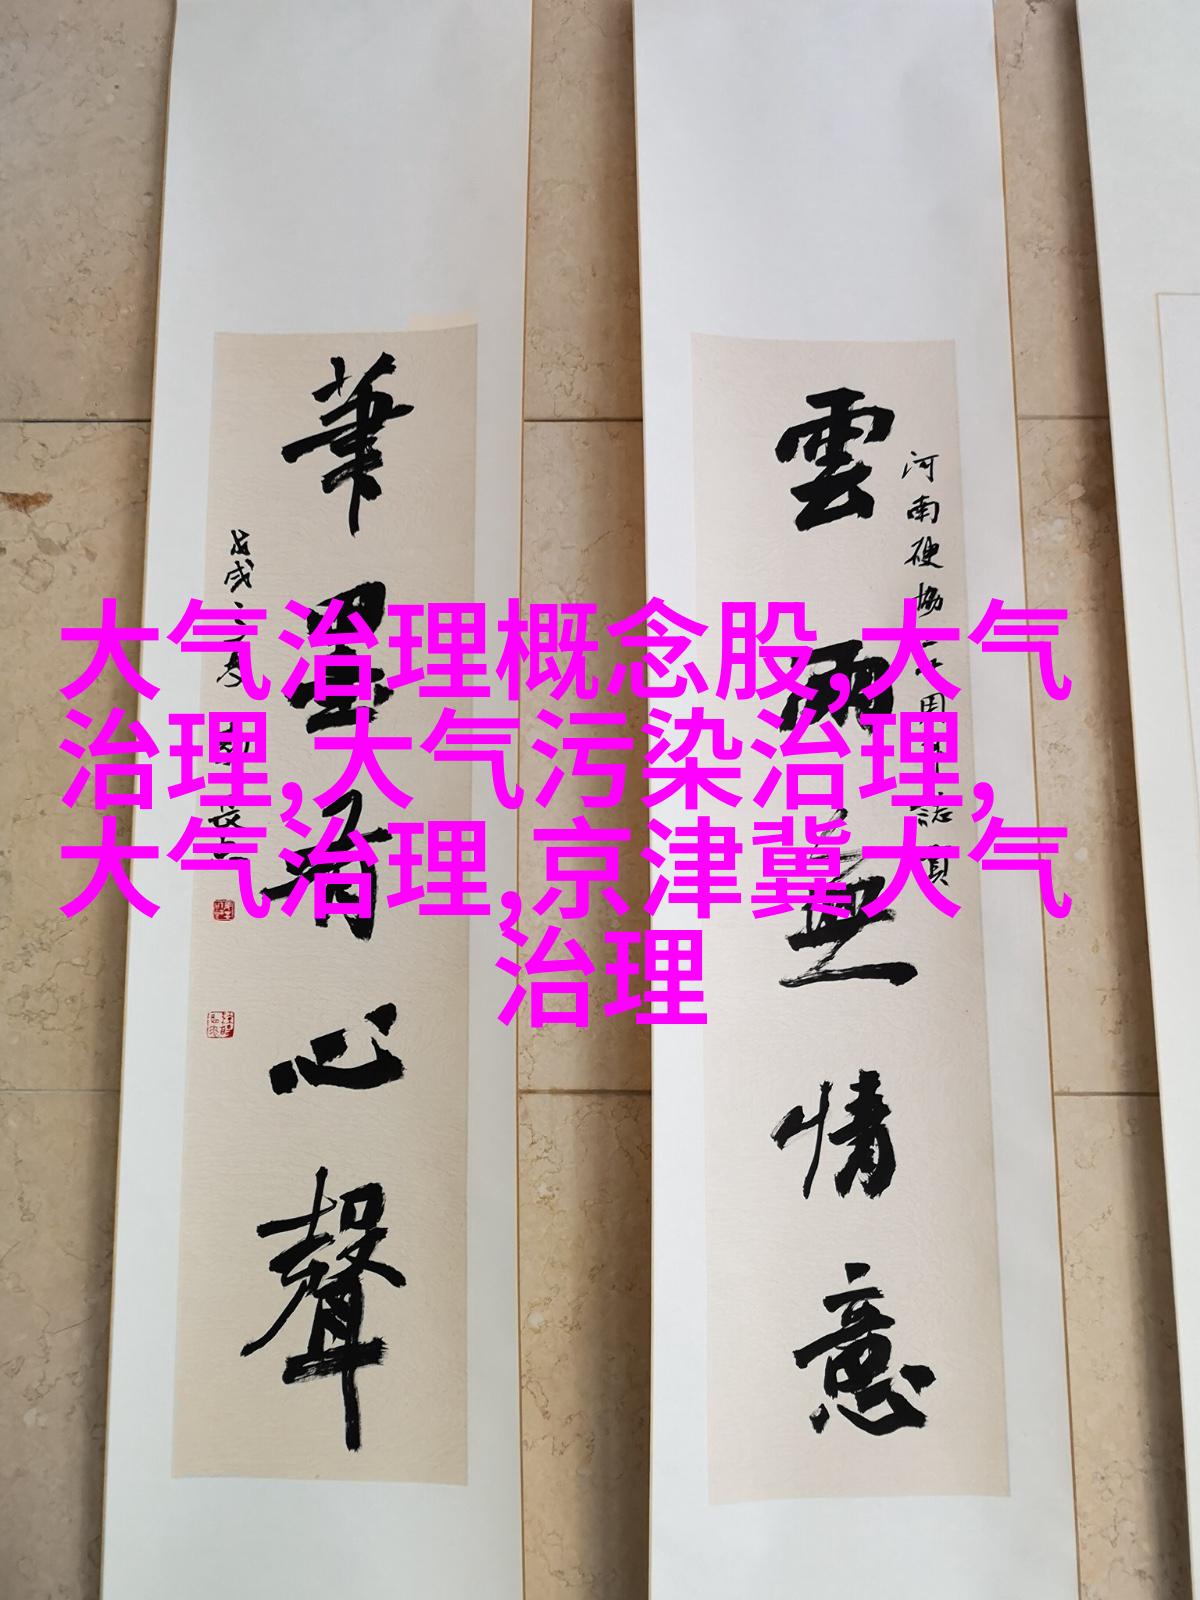 大气治理概念股,大气
治理,大气污染治理,
大气治理,京津冀大气
治理
雲雨無情意
河南硬協
筆墨有心聲
戊戌